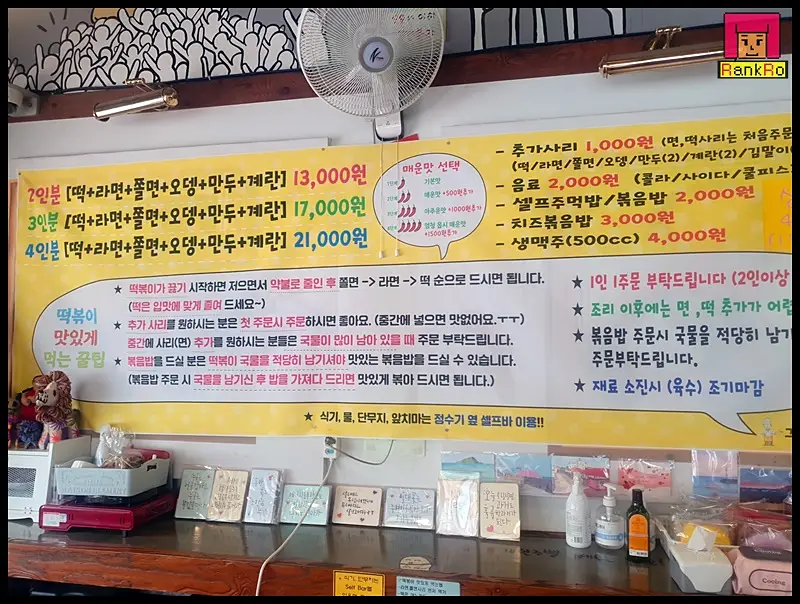 RankRo
2인분 [떡+라면+쫄면+오뎅+만두+계란] 13,000원
3인분 [떡+라면+쫄면+오뎅+만두+계란] 17,000원
4인분 [떡+라면+쫄면+오뎅+만두+계란] 21,000원
매운맛 선택
기본맛
매운맛 +500원추가
아주매운맛 +1000원추가
엄청 몹시 매운맛
+1500원추가
- 추가사리 1,000원 (면,떡사리는 처음주문
(떡/라면/쫄면/오뎅/만두(2)/계란(2)/김말이(
- 음료 2,000원 (콜라/사이다/쿨피스
- 셀프주먹밥/볶음밥 2,000원
- 치즈볶음밥 3,000원
- 생맥주(500cc) 4,000원
떡볶이
맛있게
먹는 꿀팁
★ 떡볶이가 끓기 시작하면 저으면서 약불로 줄인 후 쫄면 -> 라면 -> 떡 순으로 드시면 됩니다.
(떡은 입맛에 맞게 졸여 드세요~)
★ 추가 사리를 원하시는 분은 첫 주문시 주문하시면 좋아요. (중간에 넣으면 맛없어요.ㅜㅜ)
중간에 사리(면) 추가를 원하시는 분들은 국물이 많이 남아 있을 때 주문 부탁드립니다.
★ 볶음밥을 드실 분은 떡볶이 국물을 적당히 남기셔야 맛있는 볶음밥을 드실 수 있습니다.
(볶음밥 주문 시 국물을 남기신 후 밥을 가져다 드리면 맛있게 볶아 드시면 됩니다.)
★ 1인 1주문 부탁드립니다 (2인이상
★ 조리 이후에는 면 ,떡 추가가 어렵
★ 볶음밥 주문시 국물을 적당히 남기
주문부탁드립니다.
★ 재료 소진시 (육수) 조기마감
★ 식기, 물, 단무지, 앞치마는 정수기 옆 셀프바 이용!!
Self Bar를
Cooling